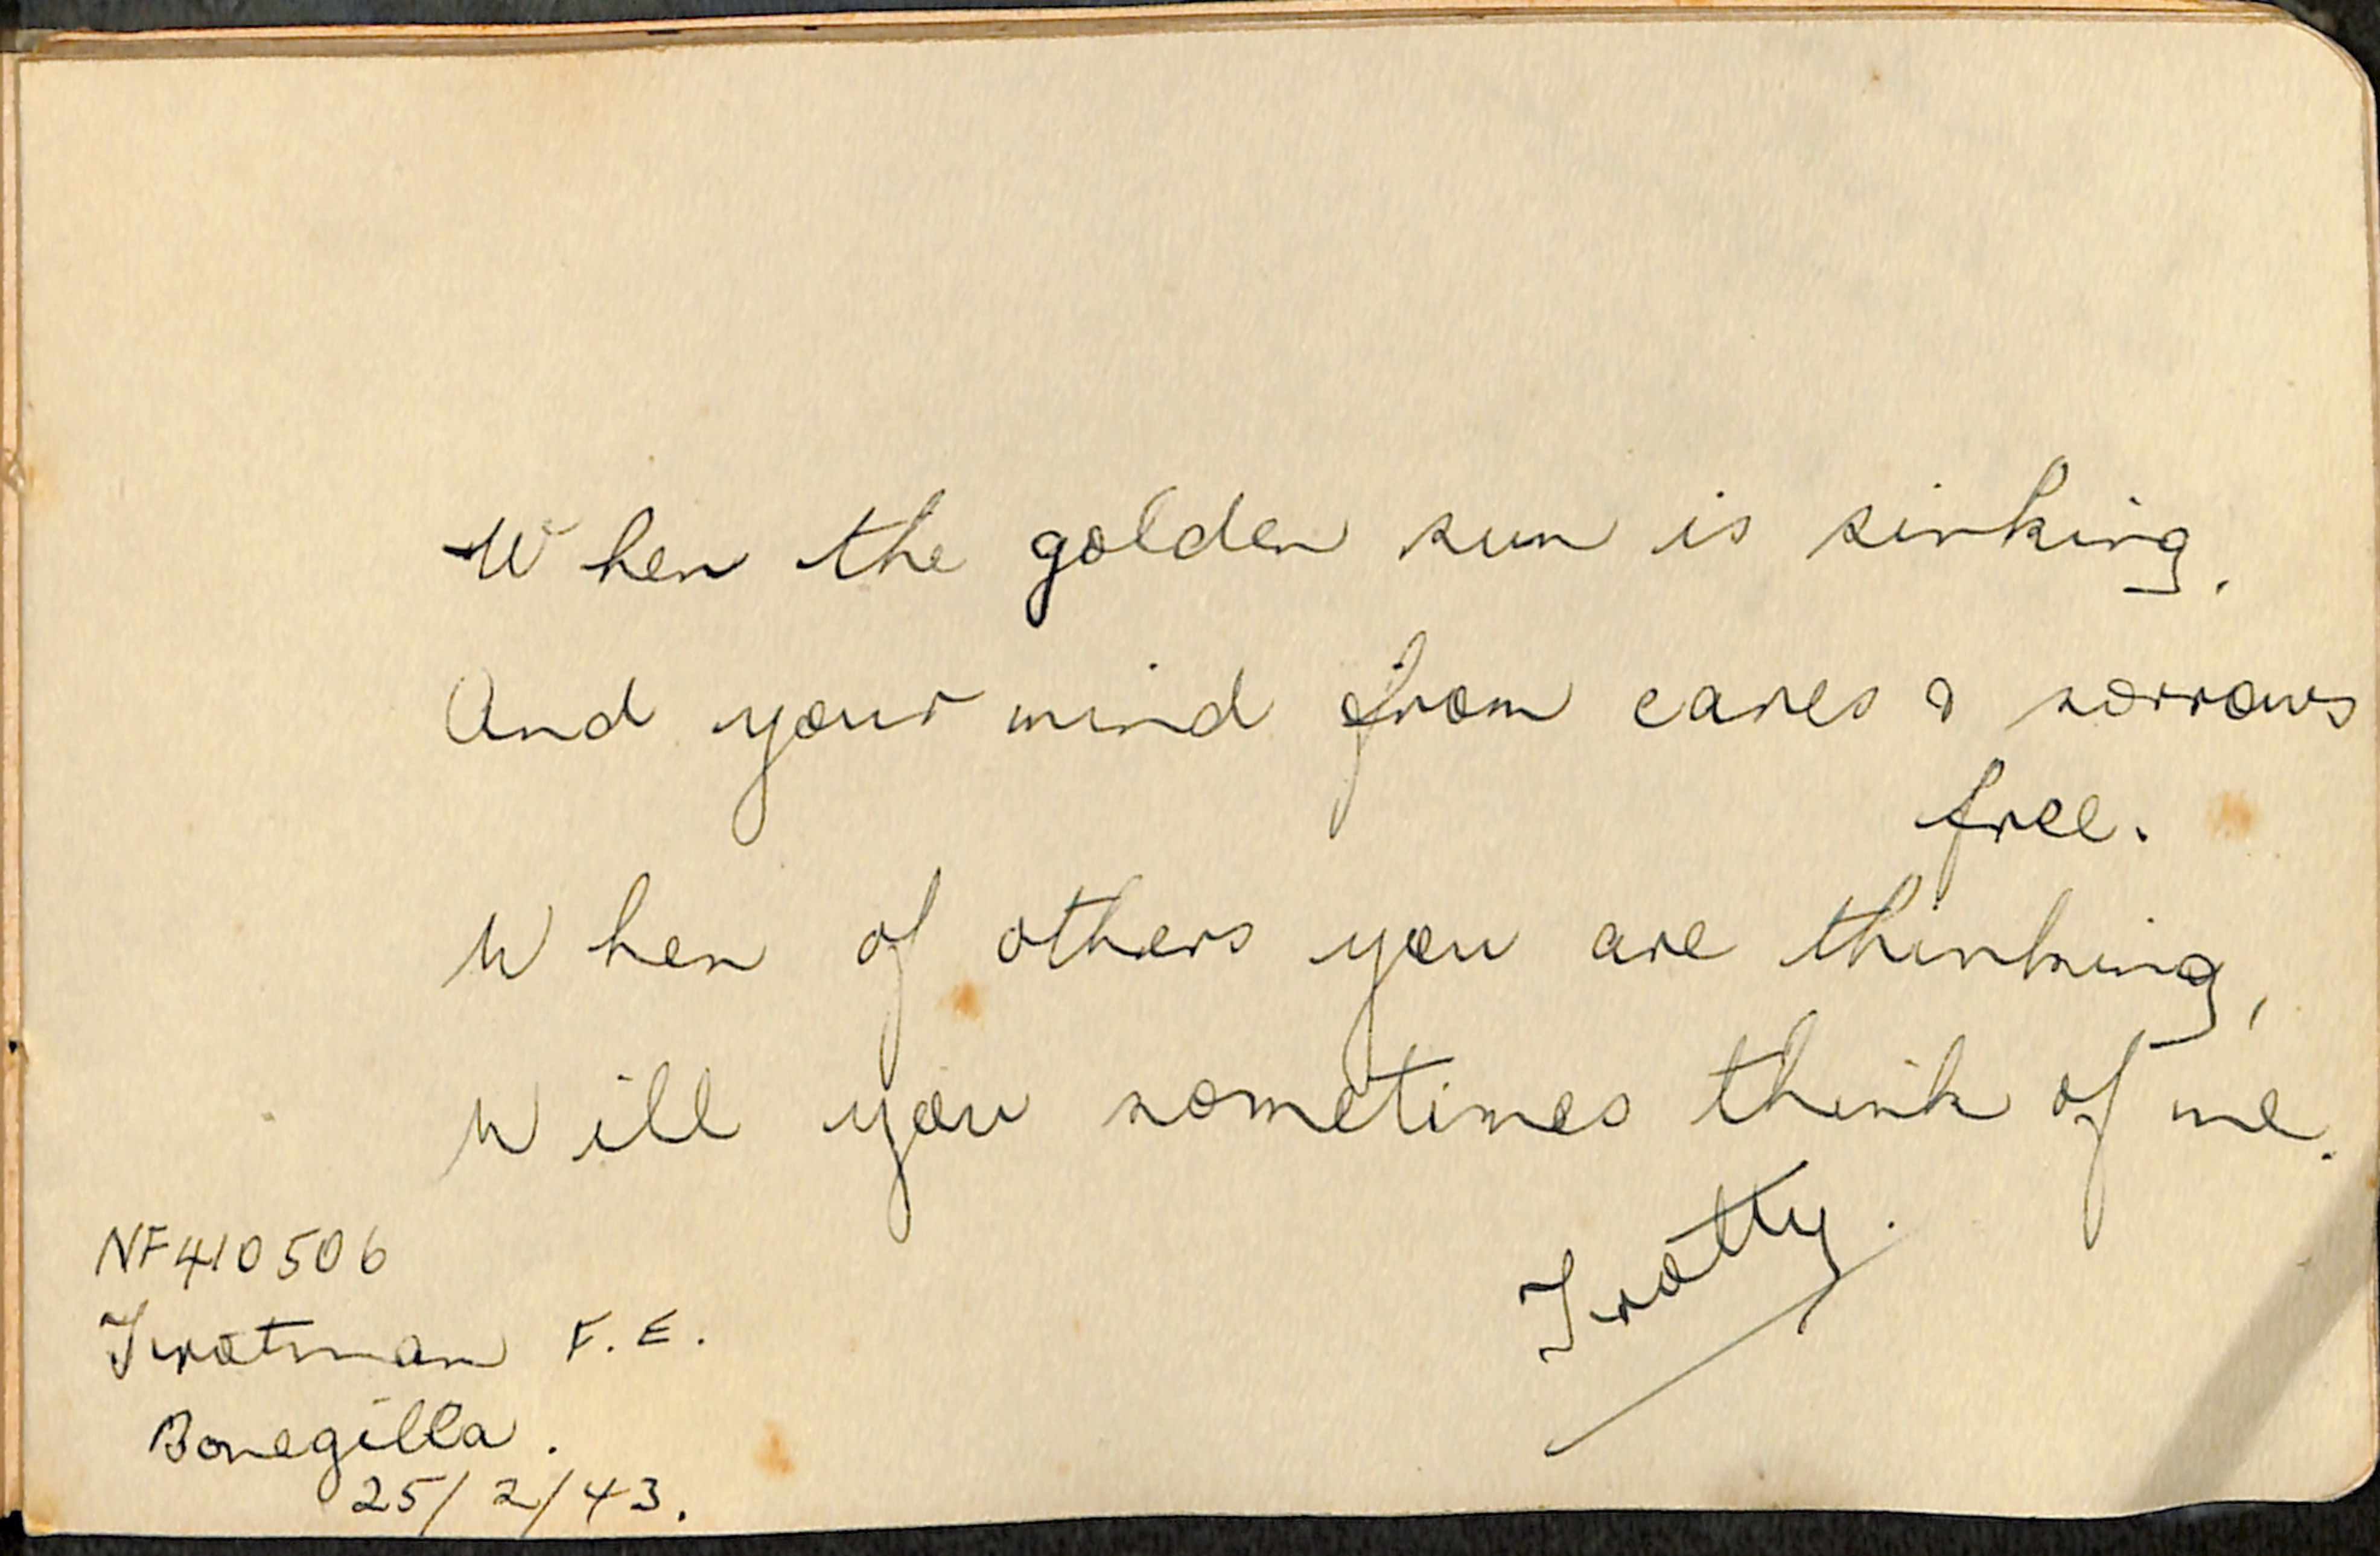 When the golden sun is sinking.
And your mind from cares & sorrows
free.
When of others you are thinking,
Will you sometimes think of me.
Trotty.
NF410506
Trotman F.E.
Bonegilla.
25/2/43.